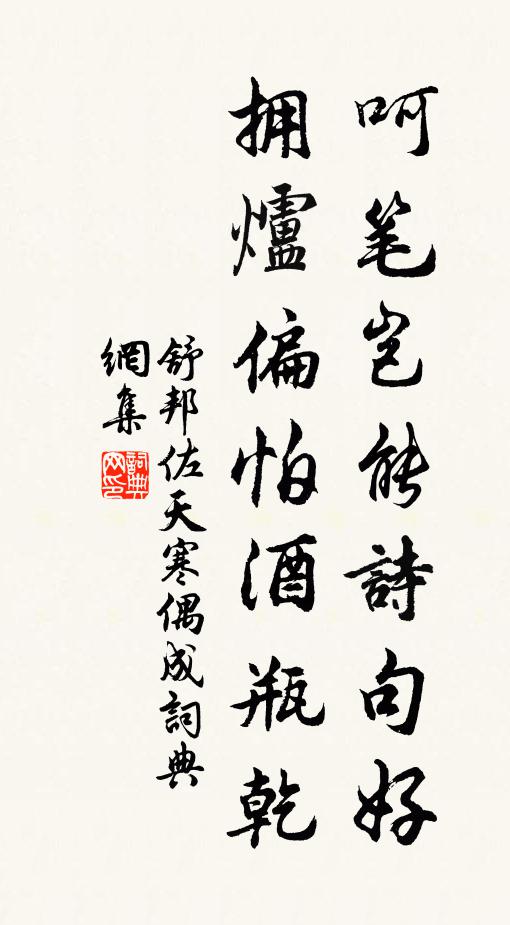 呵笔岂能詩句好
拥爐偏怕酒瓶乾
舒邦佐天寒偶成詞典
網集
詞典
网印